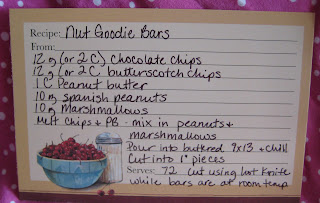 Recipe: Nut Goodie Bars
From:
12 oz (or 2 C) Chocolate chips
12 oz (or 2 C butterscotch chips
1 C Peanut butter
10 oz spanish peanuts
10 oz Marshmallows
Melt Chips & PB - mix in peanuts &
marshmallows
Pour into buttered 9x13 & chill
Cut into 1" pieces
Serves: 72 Cut using hot knife
while bars are at room temp